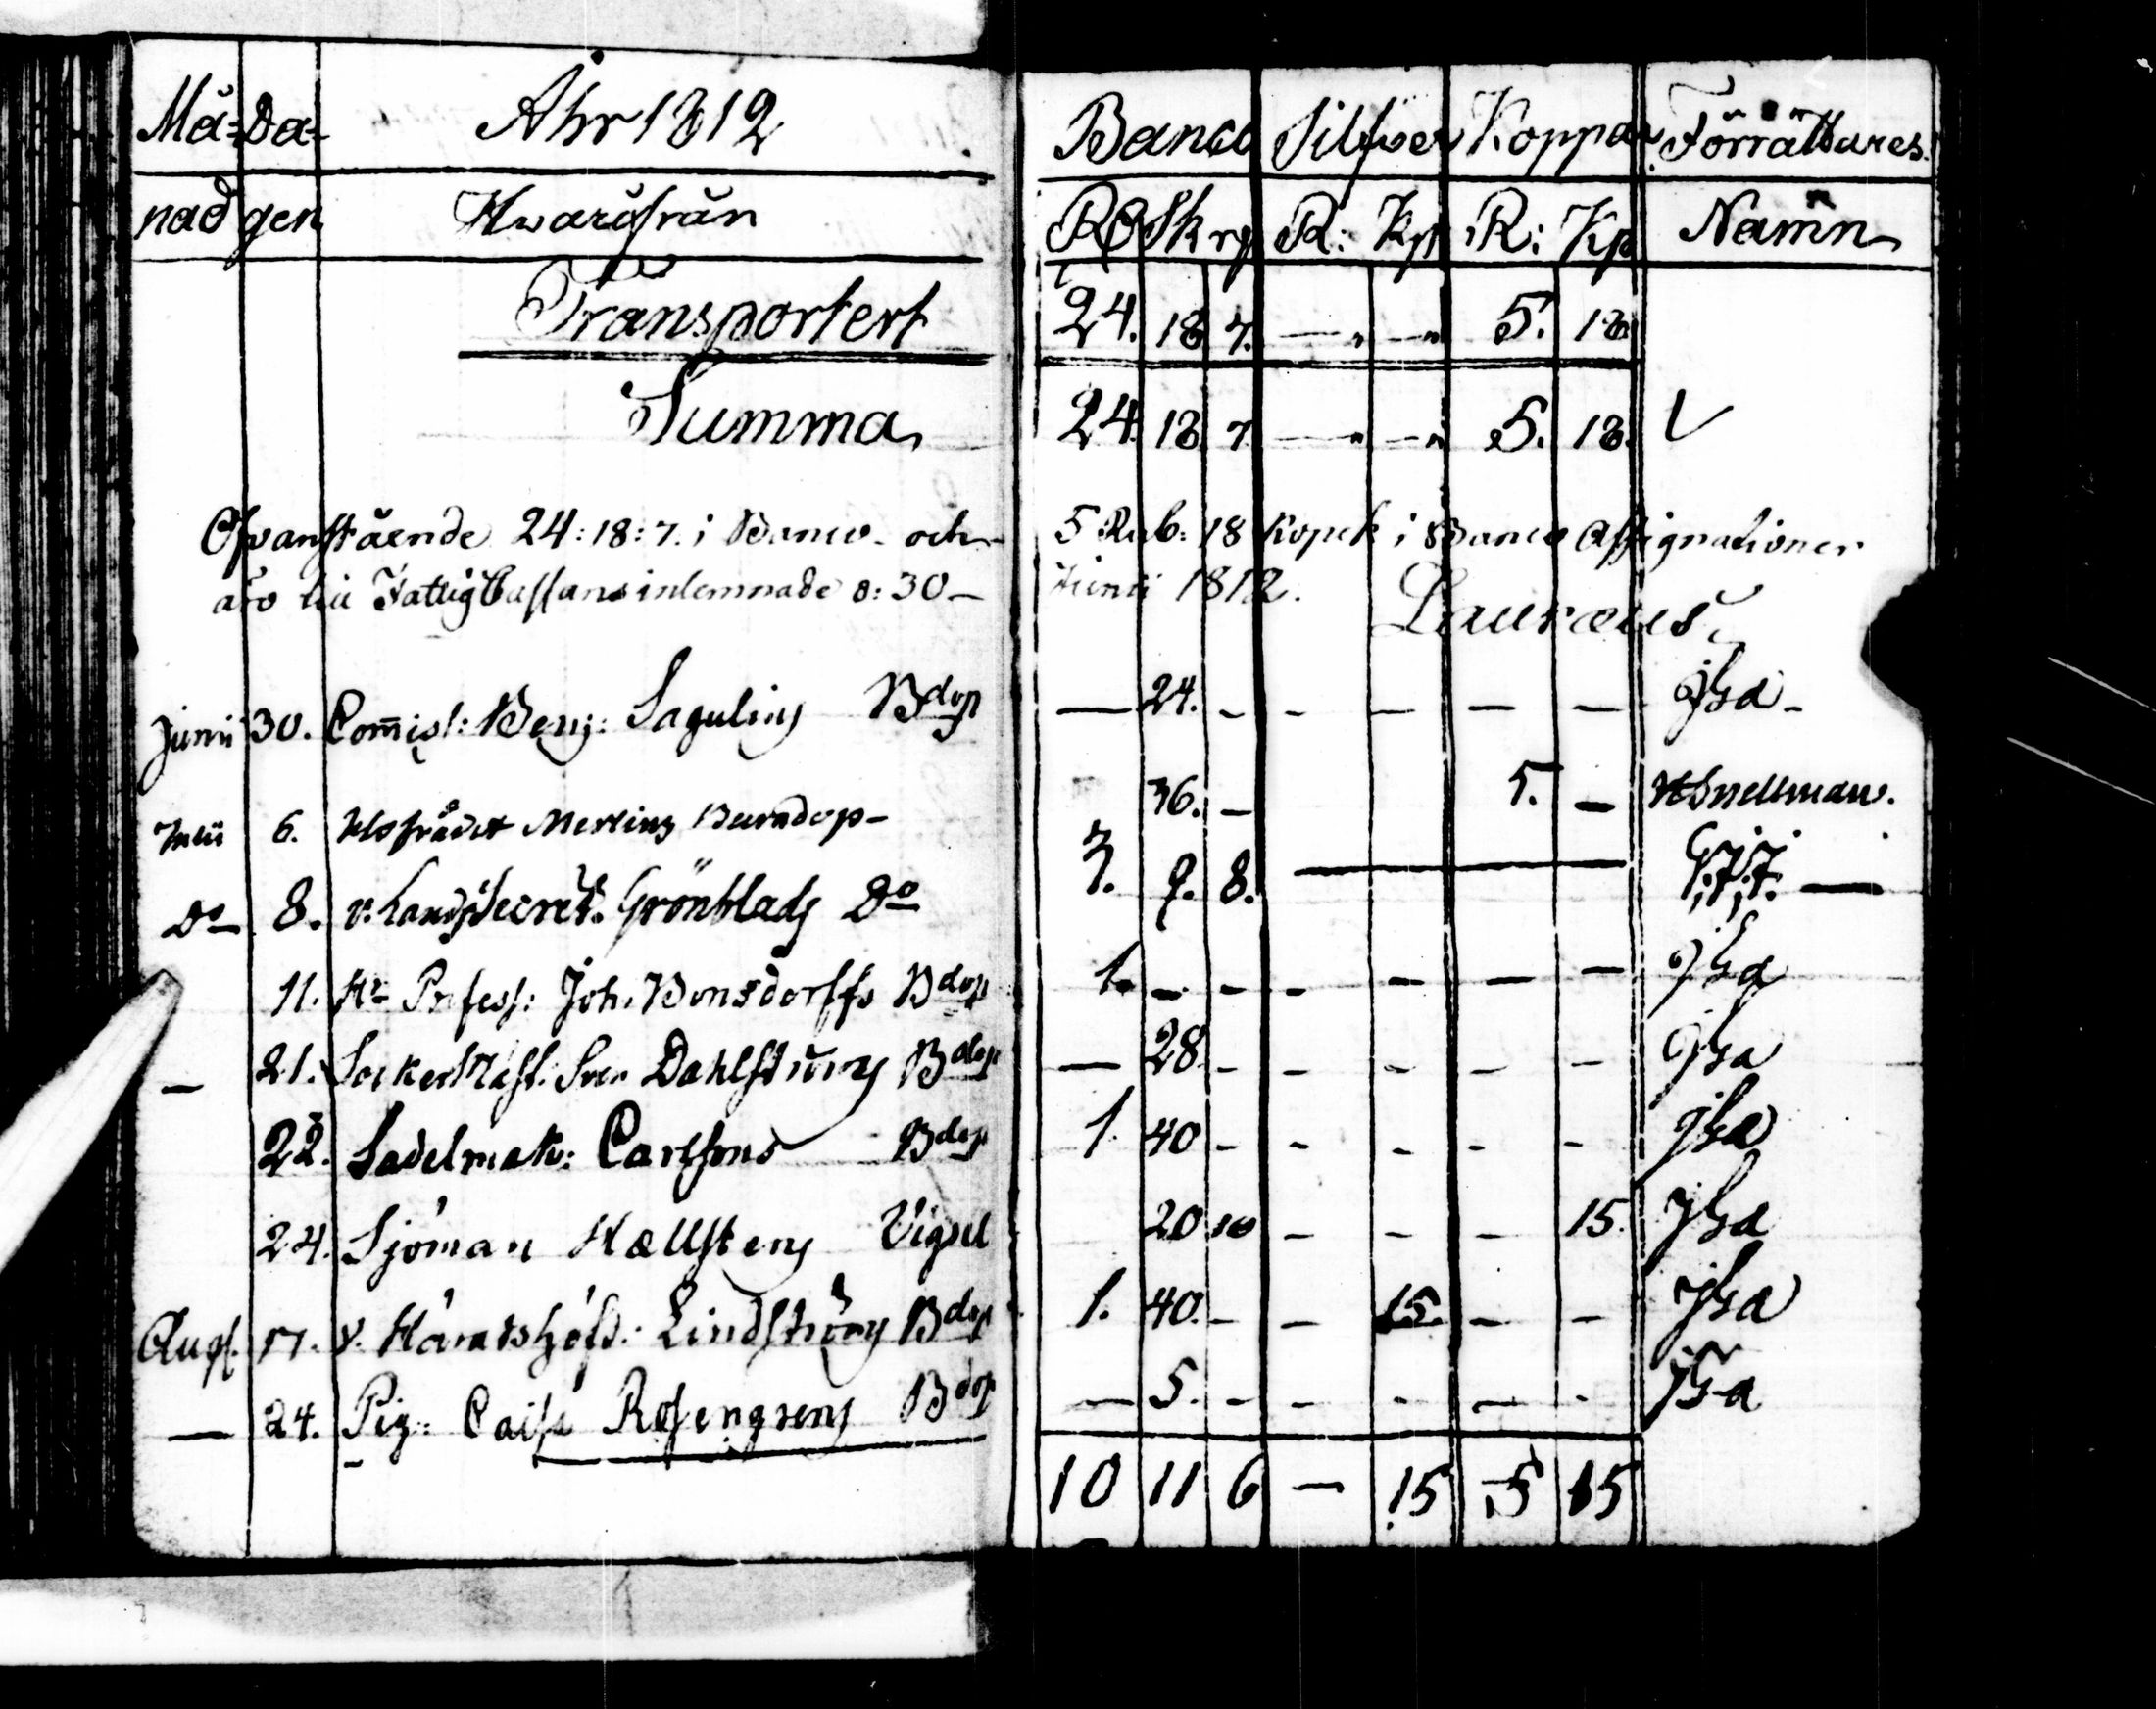 Må= Da= Åhr 1812 Banco Silfver Koppar Förrättares
nad gen Hvarifrån Rd Sk rs R: Kp R: Kp Namn
Transportert 24. 18 7. — — 5. 18.
Summa 24. 18 7. — — 5. 18. V
Ofvanstående 24: 18: 7. i Banco och 5 Rub: 18 Kopek i Banco Assignationer
äro till Fattig Cassans inlemnade d: 30 — Junii 1812. Lauræus
Junii 30. Comiss: Benj: Sagulins Bdop — 24. - - — — —
Julii 6. Hofrådet Merlins Barndop — 36. — 5. — Snellman.
Do 8. v. LandsSecret. Grönblads Do 3. 9. 8. —
11. Hr Profess: Joh. Bonsdorffs Bdop 1. — - - — — —
— 21. SockerMäst. Sven Dahlströms Bdop — 28 - - - - -
22. Sadelmak: Carlsons Bdop 1. 40 - - - - -
24. Sjöman Hællstens Vigsel 20 10 - - - 15.
Aug. 17. v. Häradshöfd: Lindströms Bdop 1. 40. - - 15. - -
— 24. Pig: Caisa Rosengrens Bdop — 5. - - - - -
10 11 6 — 15 5 15